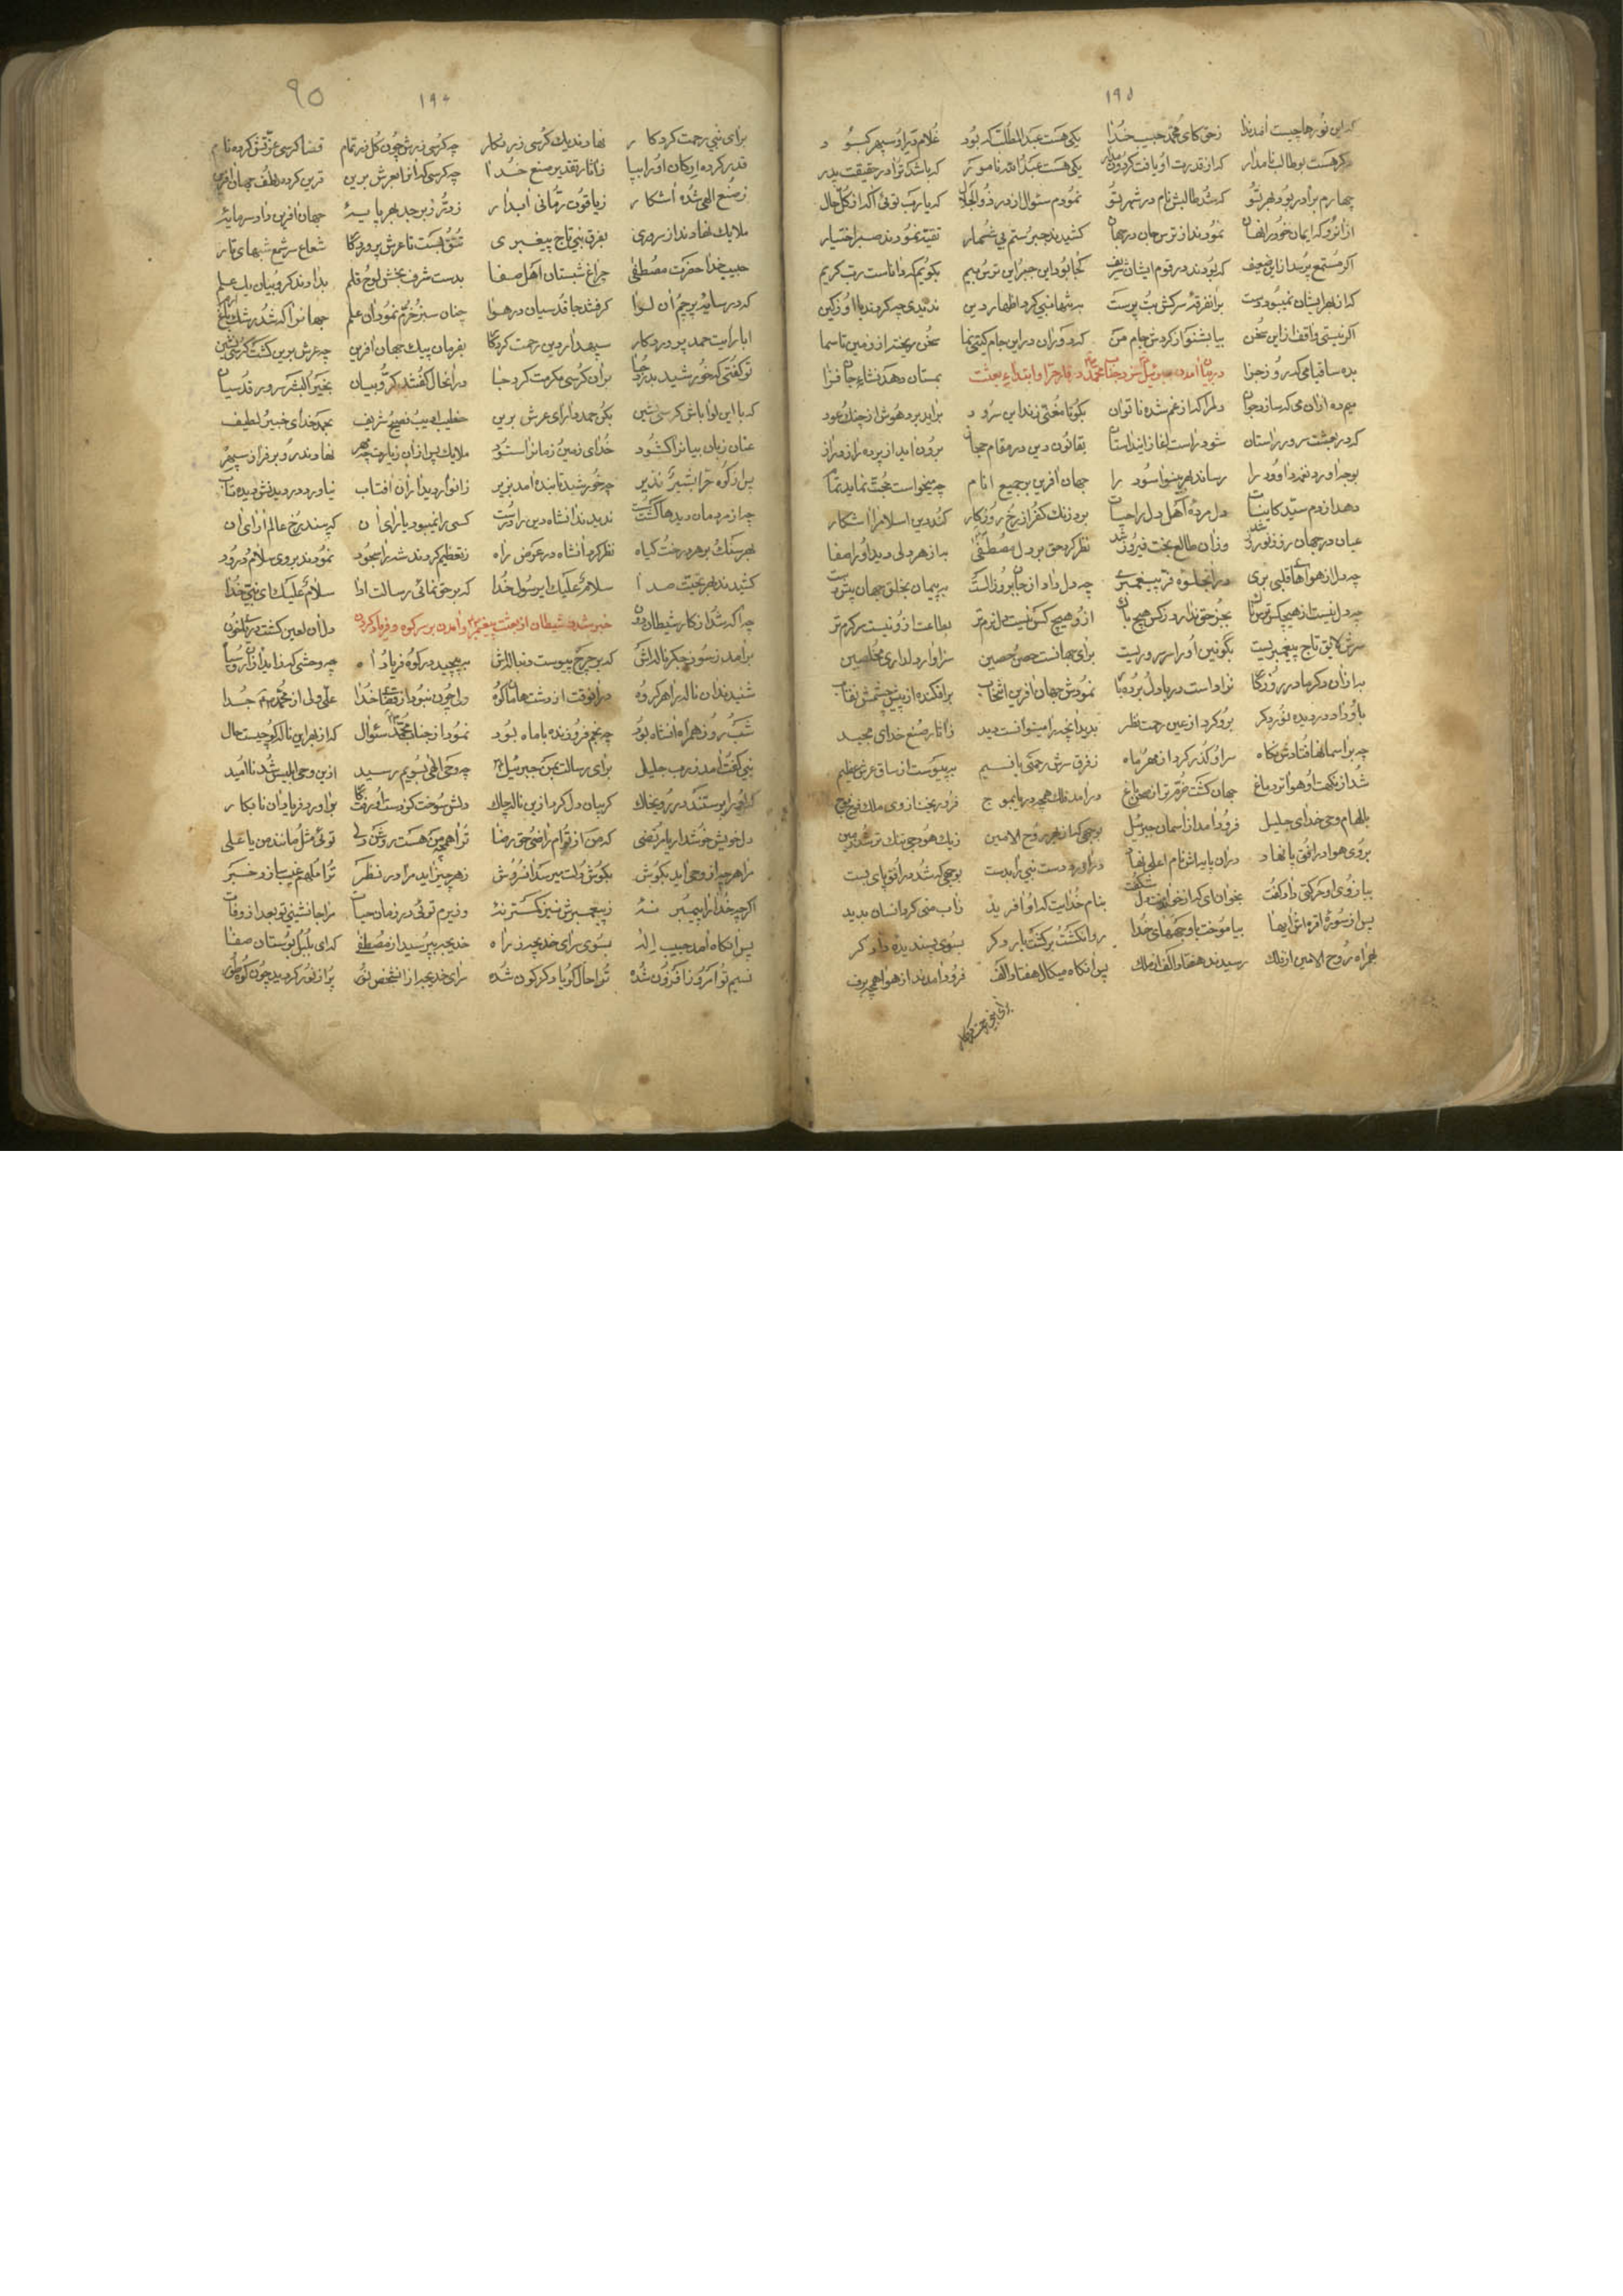 ۱۹۵
که این نورها چیست آمد ندا زحق کای محمد حبیب خدا یکی هست عبدالمطلب که بود غلام درا و سپهر کبود
دکر هست بوطالب نامدار که از قدرت او یافت کردون یکی هست عبدالله نامور که باشد ترا در حقیقت پدر
چهارم برادر بود بهر تو که شد طالبش نام در شهر تو نمودم سئوال از در ذوالجلال که یا رب توئی آکه از کل حال
از انرو که ایمان خود را نهان نمودند از ترس جان در جهان کشیدند جبر و ستم بی شمار تقیه نمودند صبر اختیار
اکر مستمع پرسد از این ضعیف که بودند در قوم ایشان شریف کجا بود این جبر این ترس و بیم بکویم که داناست رب کریم
که از بهر ایشان نمیبود دست بر انفرقه سرکش بت پرست به تنها نبی کرد اظهار دین ندیدی چه کردند با او زکین
اکر نیستی واقف از این سخن بیا بشنو از کردش جام من که دوران در این جام کیتی نما سخن ریخته از زمین تا سما
بده ساقیا می که روز جزا در بیان آمدن جبرئیل نزد جناب محمد در غار حرا و ابتداء بعثت بمستان دهد نشاء جان فزا
میم ده از ان می که سازد جوان دلم را که از غم شده ناتوان بکو تا مغنی زند این سرود برآید برد هوش از چنک و عود
که در بعثت سرور راستان شود راست آغاز این داستان بقانون دین در مقام حجاز برون آید از پرده راز و نیاز
بوجد آورد نغمه داوود را رساند بهر بینوا سود را جهان آفرین بر جمیع انام چه میخواست حجت نماید تمام
دهد از دم سید کاینات دل مرده اهل دل را حیات برد زنک کفر از رخ روزکار کند دین اسلام را آشکار
عیان در جهان روز نوروز شد وزان طالع بخت فیروز شد نظر کرد حق بر دل مصطفی به از هر دلی دید او را صفا
چه دل از هواها قلبی بری در انجلوه فر پیغمبری چه دل داد از جان بروز الست به پیمان بخلق جهان
چه دل نیست از هیچکس ترسناک بجز حق ندارد زکس هیچ باک از و هیچ کس نیست دل نرم تر بطاعت از و نیست سرکرم تر
سرش لایق تاج پیغمبریست بکونین او را سر سروریست برای جهانست حصن حصین سزاوار دلداری مخلصین
به از ان دکرها در روزکار نوا داست دریا دل بردبار نمودش جهان آفرین انتخاب برافکنده از پیش چشمش نقاب
باو داد در دیده نور دکر برو کرد از عین رحمت نظر بدید آنچه را مینوانست دید زآثار صنع خدای مجید
چه بر آسمانها فتادش نکاه سر او کذر کرد از مهر و ماه زفرق سرش رحمتی با نسیم به پیوست از ساق عرش عظیم
شد از نکهت او هوا تر دماغ جهان کشت خرم تر از صحن باغ درآمد فلک همچو دریا بموج فرو ریخت از وی ملک فوج فوج
بالهام وحی خدای جلیل فرود آمد از آسمان جبرئیل بوحی که از بهر روح الامین زیک هودجی تنک تر شد زمین
بروی هوا در افق پا نهاد دران پایه اش نام اعلی نهاد درآورد دست نبی را بدست بوحی که شد در افق پای بست
ببازوی او حرکتی داد کفت بخوان ای که از خواندنت دل شکفت بنام خدایت که او آفرید زآب منی کرد انسان پدید
پس از سوره اقرء اش ایها بیاموخت با وحیهای خدا روان کشت برکشت بار دکر بسوی پسندیده دادکر
بهمراه روح الامین از فلک رسیدند هفتاد الف از ملک پس آنکاه میکال هفتاد الف فرود آمدند از هوا همچو برف
برای نبی رحمت کردکار
۹۵
۱۹۶
برای نبی رحمت کردکار نهادند یک کرسی زرنکار چه کرسی زرش چون کل زر تمام قضا کرسی عزتش کرده نام
قدر کرده ارکان او را بپا زآثار تقدیر صنع خدا چه کرسی که از نا بعرش برین قرین کرده لطف جهان آفرین
زصنع الهی شده آشکار زیاقوت رمانی آبدار زدر و زبرجد بهر پایه جهان آفرین داد سرمایه
ملایک نهادند از سروری بفرق نبی تاج پیغمبری تتق بست تا عرش پروردکار شعاع سر شمع شبهای تار
حبیب خدا حضرت مصطفی چراغ شبستان اهل صفا بدست شرف بخش لوح و قلم بدادند کروبیان یک علم
که در سایه پرچم آن لوا کرفتند جا قدسیان در هوا چنان سبز و خرم نمود آن علم جهانرا که شد رشک باغ ارم
ابا رایت حمد پروردکار سپهدار دین رحمت کردکار بفرمان پیک جهان آفرین چه عرش برین کشت کرسی نشین
تو کفتی که خورشید بدر دجا بران کرسی مکرمت کرد جا در انحال کفتند کروبیان بخیر البشر سرور قدسیان
که با این لوا باش کرسی نشین بکو حمد دارای عرش برین خطیب ادیب فصیح شریف بحمد خدای خبیر لطیف
عنان زبان بیانرا کشود خدای زمین و زمانرا ستود ملایک پس از ان زیارت چه نهادند رو بر فراز سپهر
پس از کوه حرا بشیر نذیر چه خورشید تابنده آمد بزیر زانوار دیدار آن آفتاب نیاورد در دیدنش دیده تاب
چه از مردمان دیدها کشت سست ندیدند آنشاه دین را درست کسی را نمیبود یارای ان که بیند رخ عالم آرای ان
بهر سنک و بر هر درخت و کیاه نظر کرد آنشاه در عرض راه زتعظیم کردند شه را سجود نمودند بروی سلام و درود
کشیدند بهر تحیت صدا سلام علیک ای رسول خدا که بر حق نمائی رسالت ادا سلام علیک ای نبی خدا
چه آکه شد از کار شیطان دون خبر شدن شیطان از بعثت پیغمبر و آمدن بر سر کوه و فریاد کردن دل آن لعین کشت دریای خون
برآمد زسوز جکر ناله اش که بر چرخ پیوست دنباله اش به پیچید در کوه فریاد او چه وحشی که زاید از
شنیدند آن ناله را هر کروه در انوقت از دشت و هامان و کوه ولی چون نبود از قضا خدا علی ولی از محمد جدا
شب و روز همراه آنشاه بود چه نجم فروزنده با ماه بود نمود از جناب محمد سئوال که از بهر این ناله کو چیست حال
نبی کفت آمد زرب جلیل برای رسالت بمن جبرئیل چه وحی الهی بسویم رسید ازین وحی ابلیس شد ناامید
که او را پرستند در روی خاک کریبان دل کرد ازین ناله چاک دلش سوخت کو دست او رفت کار برآورد فریاد آن نابکار
دل خویش خوشدار یا مرتضی که من از تو ام راضی و حق رضا ترا همچو من هست روشن دلی توئی مثل و مانند من یا علی
مرا هرچه از وحی آید بکوش بکوش دلت میرسد آن سروش زهر چیز آید مرا در نظر ترا ملهم غیب سازد خبر
اکرچه خدا را پیمبر نه زپیغمبرش نیز کمتر نه وزیرم توئی در زمان حیات مرا جانشینی تو بعد از وفات
پس آنکاه آمد حبیب اله بسوی سرای خدیجه زراه خدیجه بپرسید از مصطفی که ای بلبل بوستان صفا
نسیم تو امروز افزون شده ترا حال کویا دکرکون شده سرای خدیجه از انشخص نور پر از نور کردید چون کوه طور